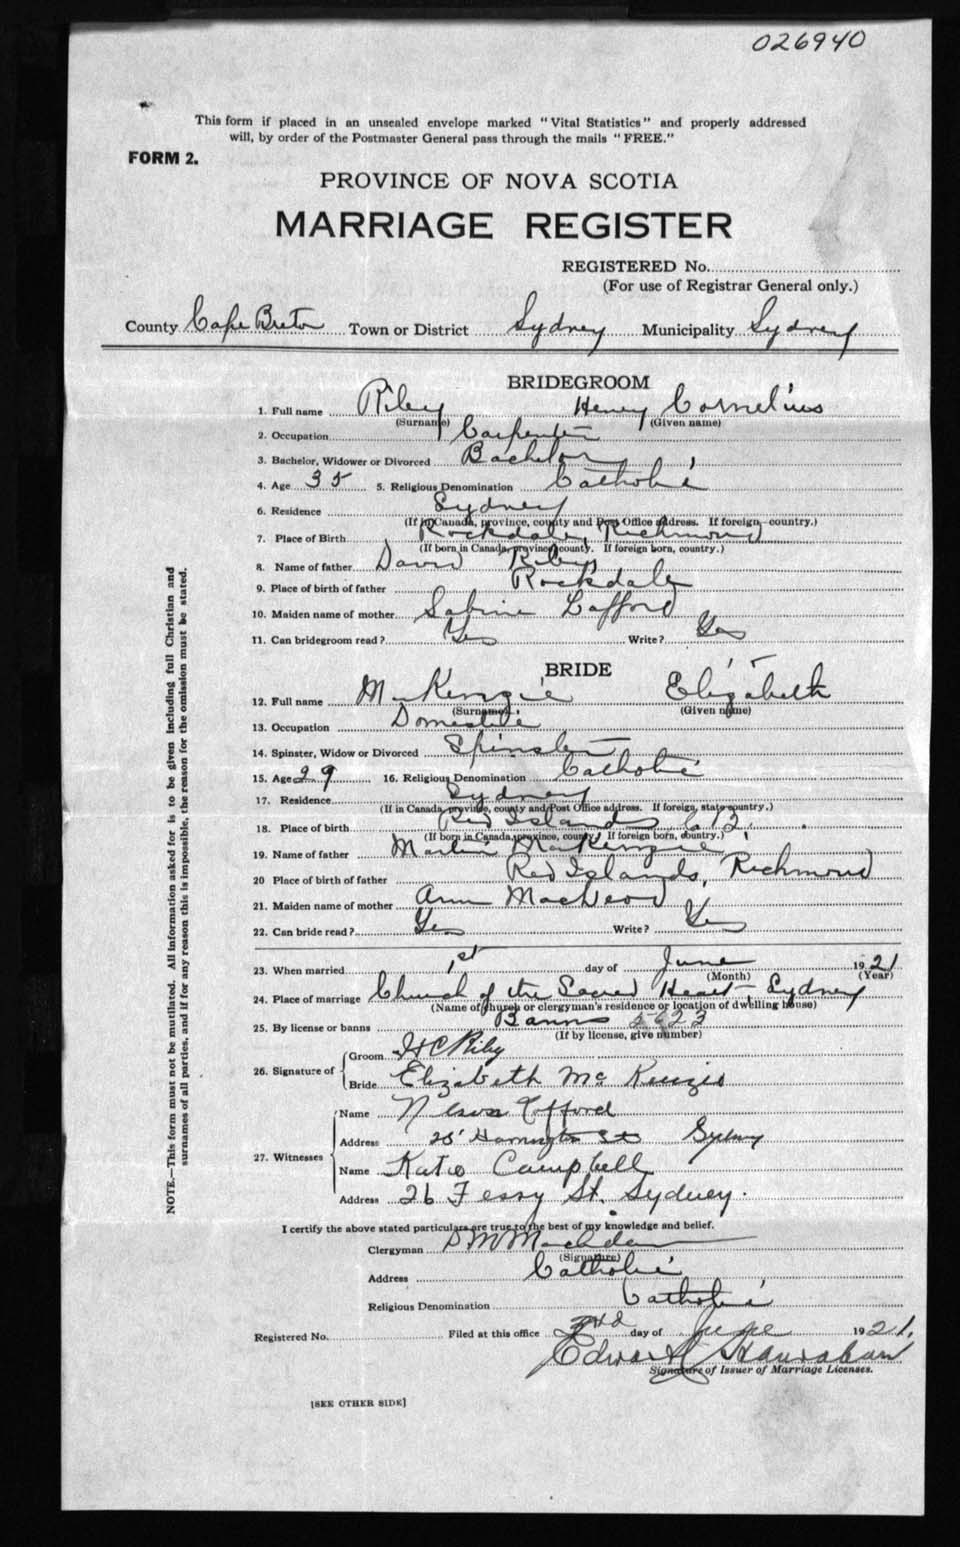 026940
This form if placed in an unsealed envelope marked "Vital Statistics" and properly addressed
will, by order of the Postmaster General pass through the mails "FREE."
FORM 2.
PROVINCE OF NOVA SCOTIA
MARRIAGE REGISTER
REGISTERED No.
(For use of Registrar General only.)
County Cape Breton Town or District Sydney Municipality Sydney
BRIDEGROOM
1. Full name Riley Henry Cornelius
(Surname) (Given name)
2. Occupation Carpenter
3. Bachelor, Widower or Divorced Bachelor
4. Age 35 5. Religious Denomination Catholic
6. Residence Sydney
(If in Canada, province, county and Post Office address. If foreign—country.)
7. Place of Birth Rockdale, Richmond
(If born in Canada, province, county. If foreign born, country.)
8. Name of father David Riley
9. Place of birth of father Rockdale
10. Maiden name of mother Sabine Lafford
11. Can bridegroom read? Yes Write? Yes
BRIDE
12. Full name MacKenzie Elizabeth
(Surname) (Given name)
13. Occupation Domestic
14. Spinster, Widow or Divorced Spinster
15. Age 29 16. Religious Denomination Catholic
17. Residence Sydney
(If in Canada, province, county and Post Office address. If foreign, state country.)
18. Place of birth Red Islands C. B.
(If born in Canada, province, county. If foreign born, country.)
19. Name of father Martin MacKenzie
20 Place of birth of father Red Islands, Richmond
21. Maiden name of mother Ann MacLeod
22. Can bride read? Yes Write? Yes
23. When married 1st day of June 1921
(Month) (Year)
24. Place of marriage Church of the Sacred Heart - Sydney
(Name of church or clergyman's residence or location of dwelling house)
25. By license or banns Banns 5623
(If by license, give number)
26. Signature of
Groom H C Riley
Bride Elizabeth McKenzie
27. Witnesses
Name Nelson Lafford
Address 25 Harrington St Sydney
Name Katie Campbell
Address 26 Ferry St. Sydney.
I certify the above stated particulars are true to the best of my knowledge and belief.
Clergyman
(Signature)
Address Catholic
Religious Denomination Catholic
Registered No. Filed at this office 3rd day of June 1921.
Edward Hanrahan
Signature of Issuer of Marriage Licenses.
[SEE OTHER SIDE]
NOTE.—This form must not be mutilated. All information asked for is to be given including full Christian and
surnames of all parties, and if for any reason this is impossible, the reason for the omission must be stated.